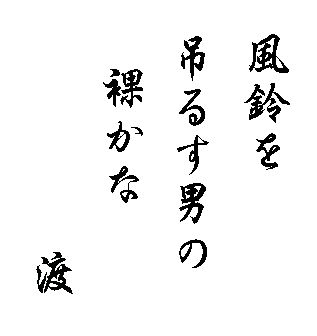 風鈴を
吊るす男の
裸かな
渡